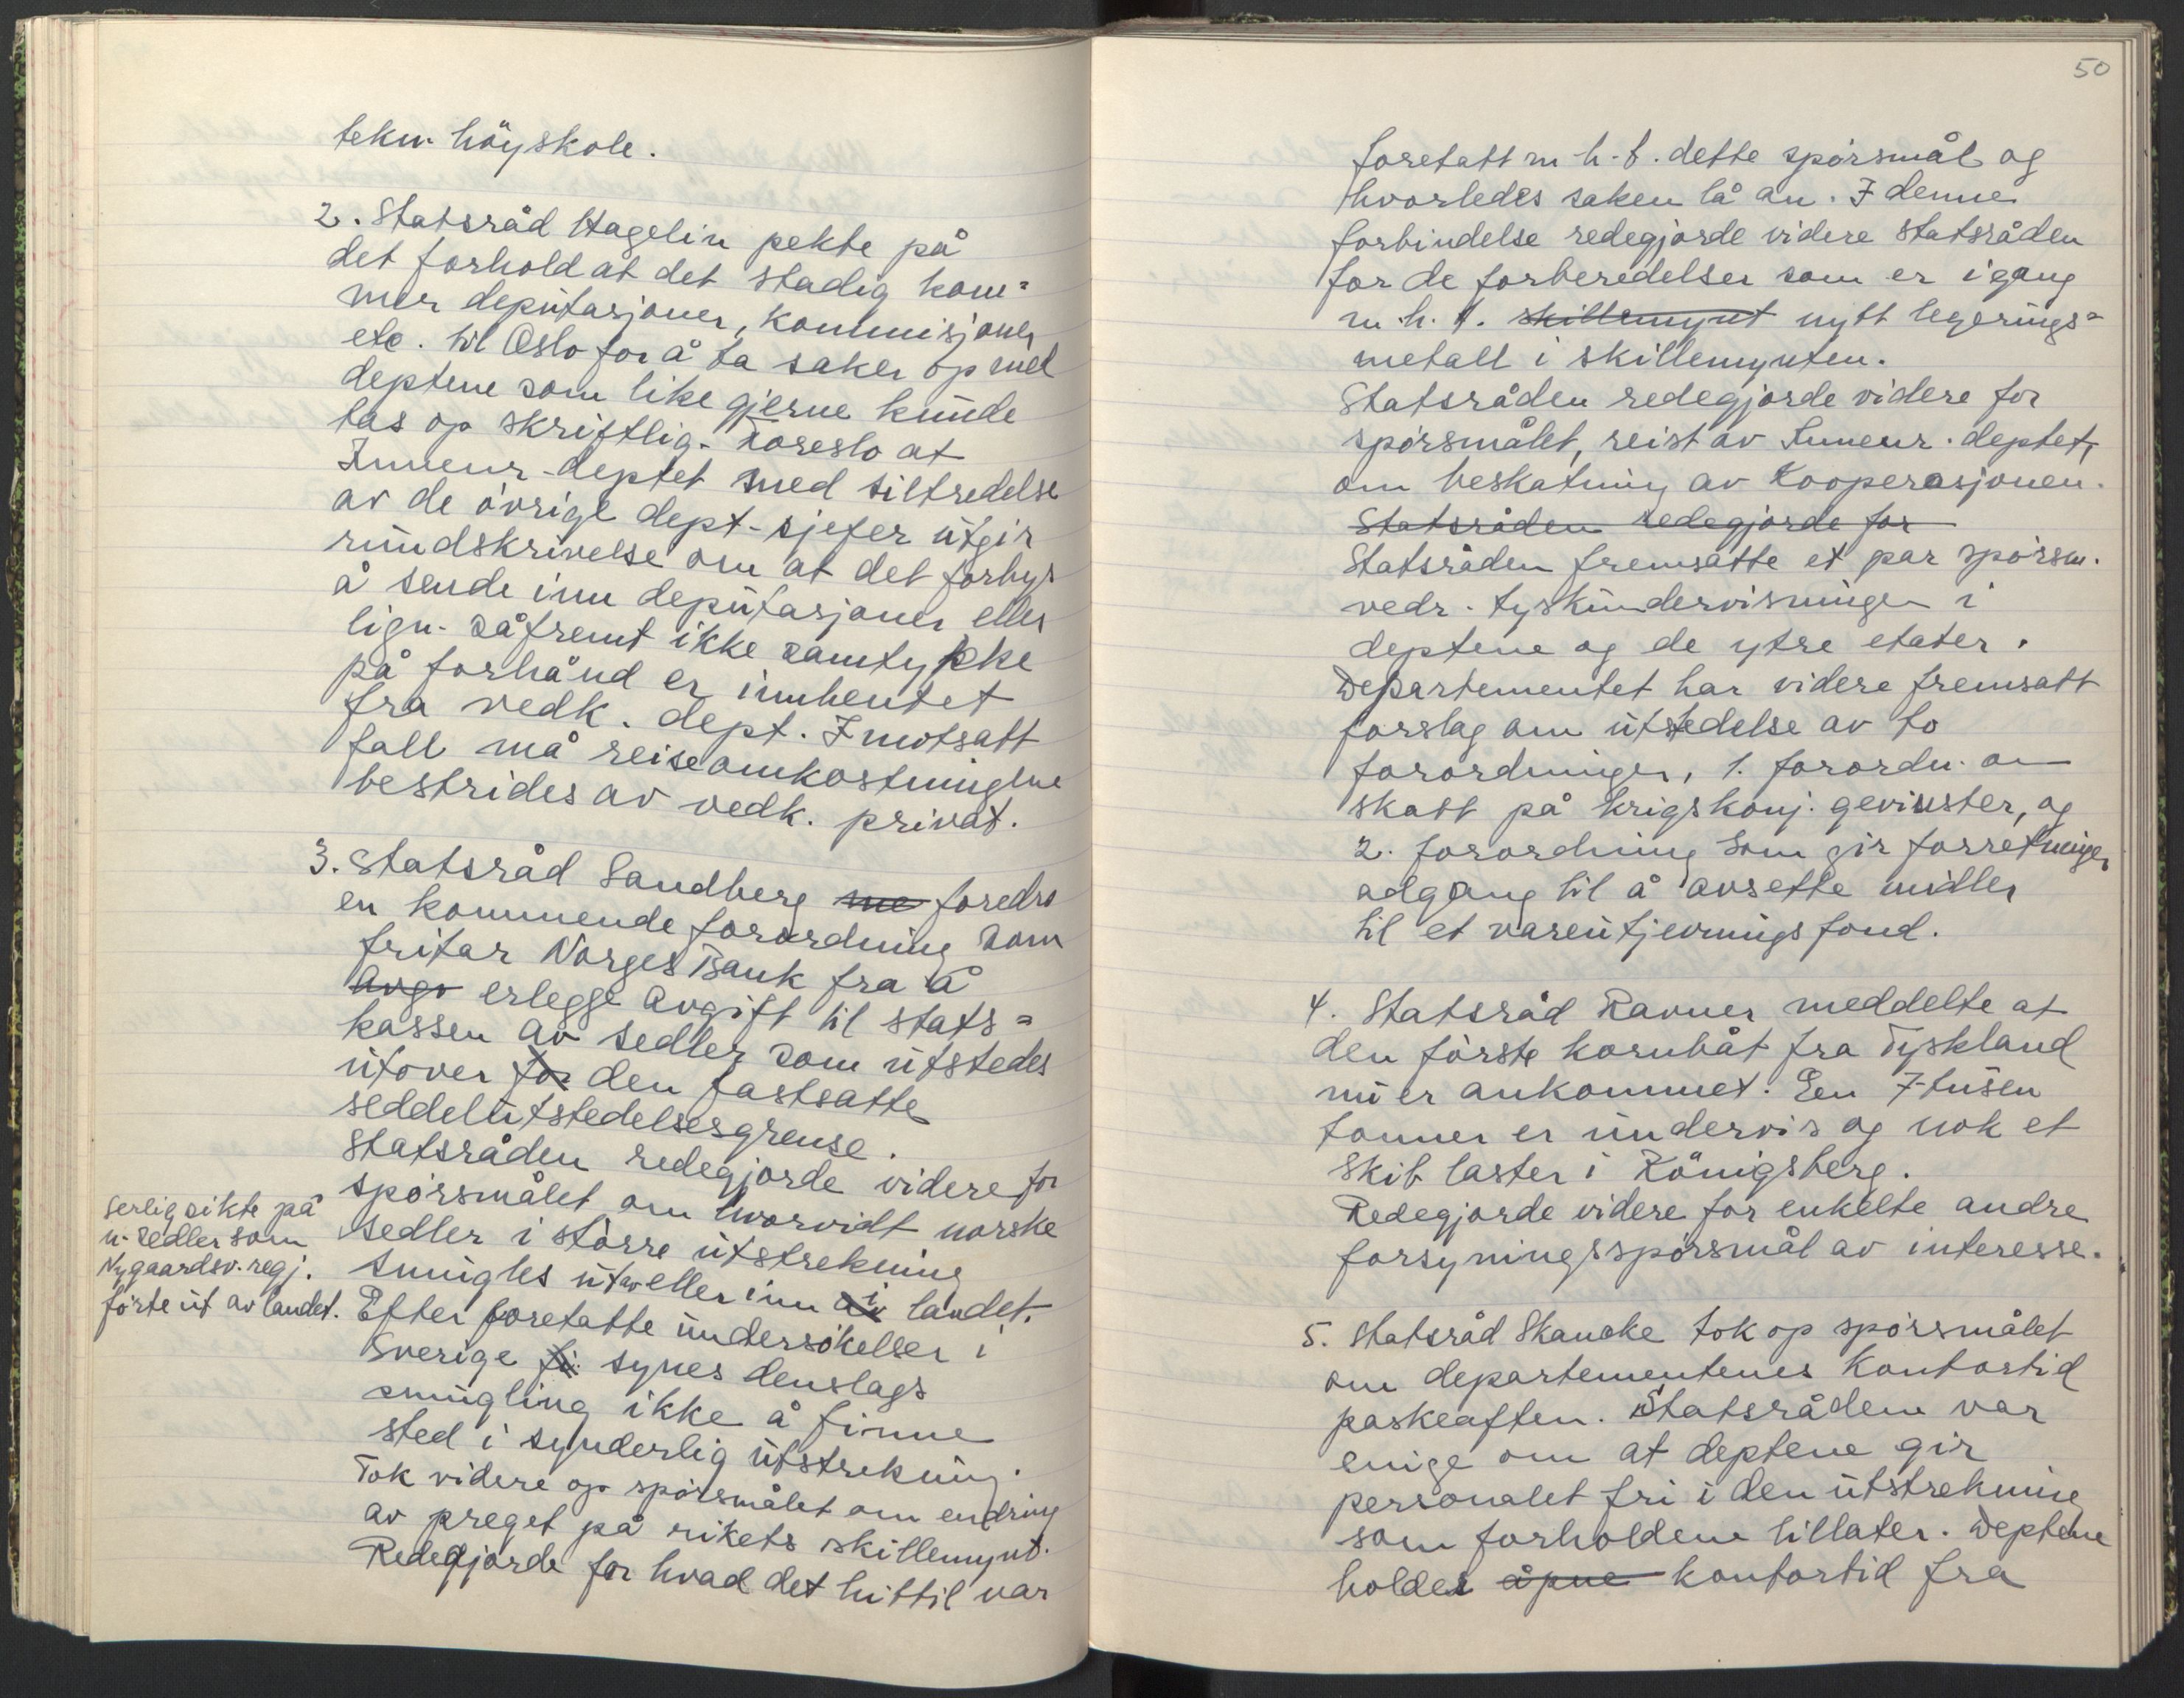 tekn. höyskole.
2. Statsråd Hagelin pekte på
det forhold at det stadig kom=
mer deputasjoner, kommisjoner
etc. til Oslo for å ta saker op med
deptene som like gjerne kunde
tas op skriftlig. Foreslo at
Innenr.-deptet med tiltredelse
av de övrige dept-sjefer utgir
rundskrivelse om at det forbys
å sende inn deputasjoner eller
lign. såfremt ikke samtykke
på forhånd er innhentet
fra vedk. dept. I motsatt
fall må reiseomkostningene
bestrides av vedk. privat.
3. Statsråd Sandberg me foredro
en kommende forordning som
fritar Norges Bank fra å
avgv erlegge avgift til stats=
kassen av sedler som utstedes
utover for den fastsatte
seddelutstedelsesgrense.
Statsråden redegjorde videre for
spörsmålet om hvorvidt norske
sedler i större utstrekning
smugles ut av eller inn av i landet.
serlig sikte på
n. sedler som
Nygaardsv. regj.
förte ut av landet.
Efter foretatte undersökelser i
Sverige fi synes denslags
smugling ikke å finne
sted i synderlig utstrekning.
Tok videre op spörsmålet om endring
av preget på rikets skillemynt.
Redegjorde for hvad det hittil var
50
foretatt m.h.t. dette spörsmål og
hvorledes saken lå an. I denne
forbindelse redegjorde videre statsråden
for de forberedelser som er igang
m.h.t. skillemynt nytt legerings=
metall i skillemynten.
Statsråden redegjorde videre for
spörsmålet, reist av Innenr. deptet,
om beskatning av Kooperasjonen.
Statsråden redegjorde for
Statsråden fremsatte et par spörsm.
vedr. tyskundervisningen i
deptene og de ytre etater.
Departementet har videre fremsatt
forslag om utstedelse av to
forordninger, 1. forordn. om
skatt på krigskonj. gevinster, og
2. forordning som gir forretninger
adgang til å avsette midler
til et vareutjevningsfond.
4. Statsråd Ravner meddelte at
den förste kornbåt fra Tyskland
nu er ankommet. En 7-tusen
tonner er undervis og nok et
skib laster i Königsberg.
Redegjorde videre for enkelte andre
forsyningsspörsmål av interesse.
5. Statsråd Skancke tok op spörsmålet
om departementenes kontortid
påskeaften. Statsrådene var
enige om at deptene gir
personalet fri i den utstrekning
som forholdene tillater. Deptene
holder åpne kontortid fra